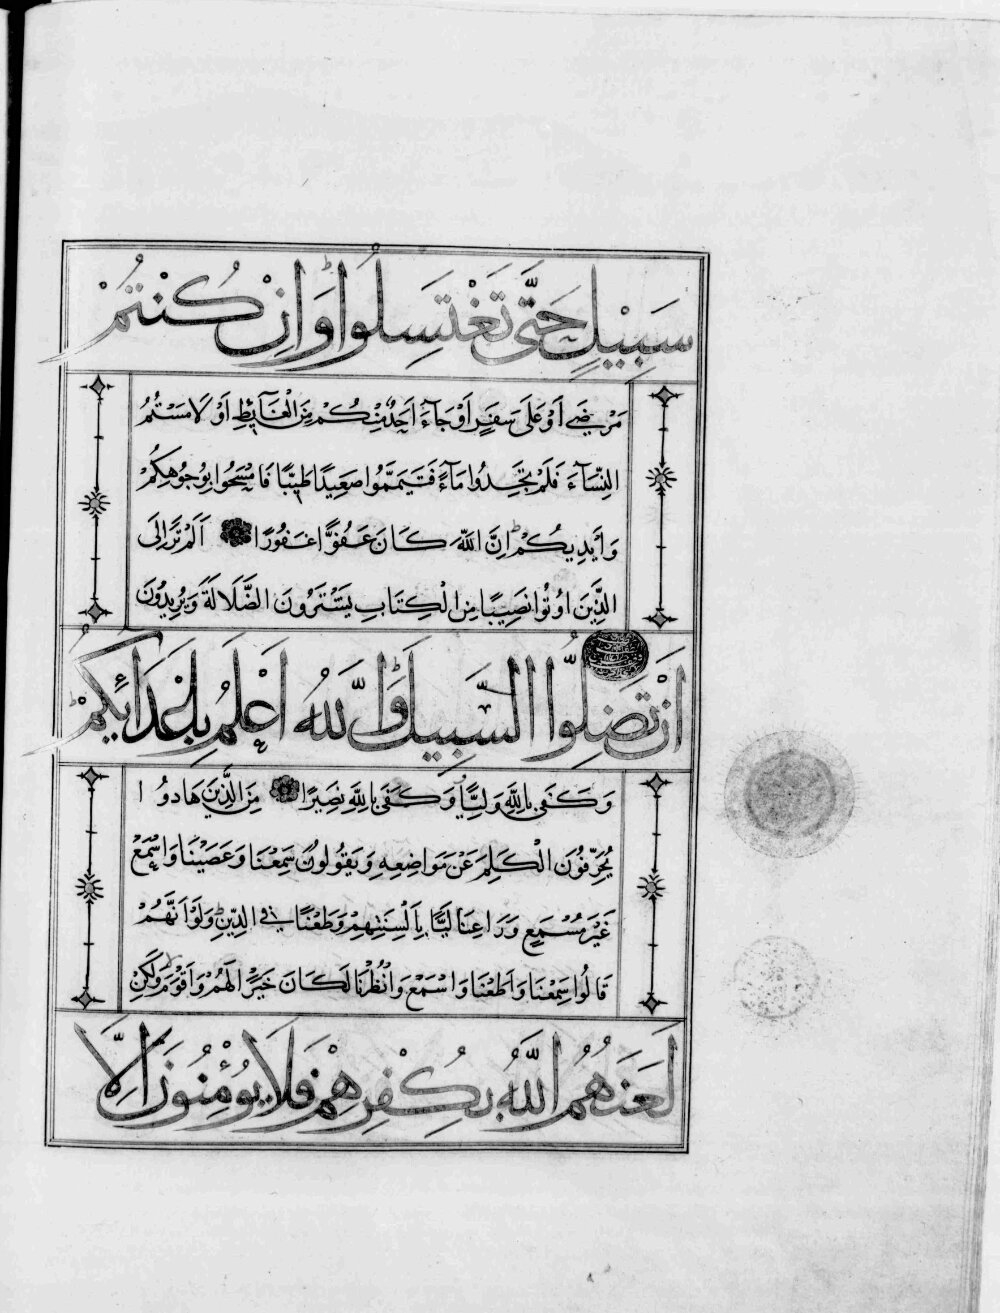 سَبِيلٍ حَتَّى تَغْتَسِلُوا وَاِنْ كُنْتُمْ
مَرْضَى اَوْ عَلَى سَفَرٍ اَوْ جَآءَ اَحَدٌ مِنْكُمْ مِنَ الْغَآئِطِ اَوْ لَامَسْتُمُ
النِّسَآءَ فَلَمْ تَجِدُوا مَآءً فَتَيَمَّمُوا صَعِيدًا طَيِّبًا فَامْسَحُوا بِوُجُوهِكُمْ
وَاَيْدِيكُمْ اِنَّ اللّٰهَ كَانَ عَفُوًّا غَفُورًا اَلَمْ تَرَ اِلَى
الَّذِينَ اُوتُوا نَصِيبًا مِنَ الْكِتَابِ يَشْتَرُونَ الضَّلَالَةَ وَيُرِيدُونَ
اَنْ تَضِلُّوا السَّبِيلَ وَاللّٰهُ اَعْلَمُ بِاَعْدَائِكُمْ
وَكَفَى بِاللّٰهِ وَلِيًّا وَكَفَى بِاللّٰهِ نَصِيرًا مِنَ الَّذِينَ هَادُوا
يُحَرِّفُونَ الْكَلِمَ عَنْ مَوَاضِعِهِ وَيَقُولُونَ سَمِعْنَا وَعَصَيْنَا وَاسْمَعْ
غَيْرَ مُسْمَعٍ وَرَاعِنَا لَيًّا بِاَلْسِنَتِهِمْ وَطَعْنًا فِي الدِّينِ وَلَوْ اَنَّهُمْ
قَالُوا سَمِعْنَا وَاَطَعْنَا وَاسْمَعْ وَانْظُرْنَا لَكَانَ خَيْرًا لَهُمْ وَاَقْوَمَ وَلَكِنْ
لَعَنَهُمُ اللّٰهُ بِكُفْرِهِمْ فَلَا يُؤْمِنُونَ اِلَّا